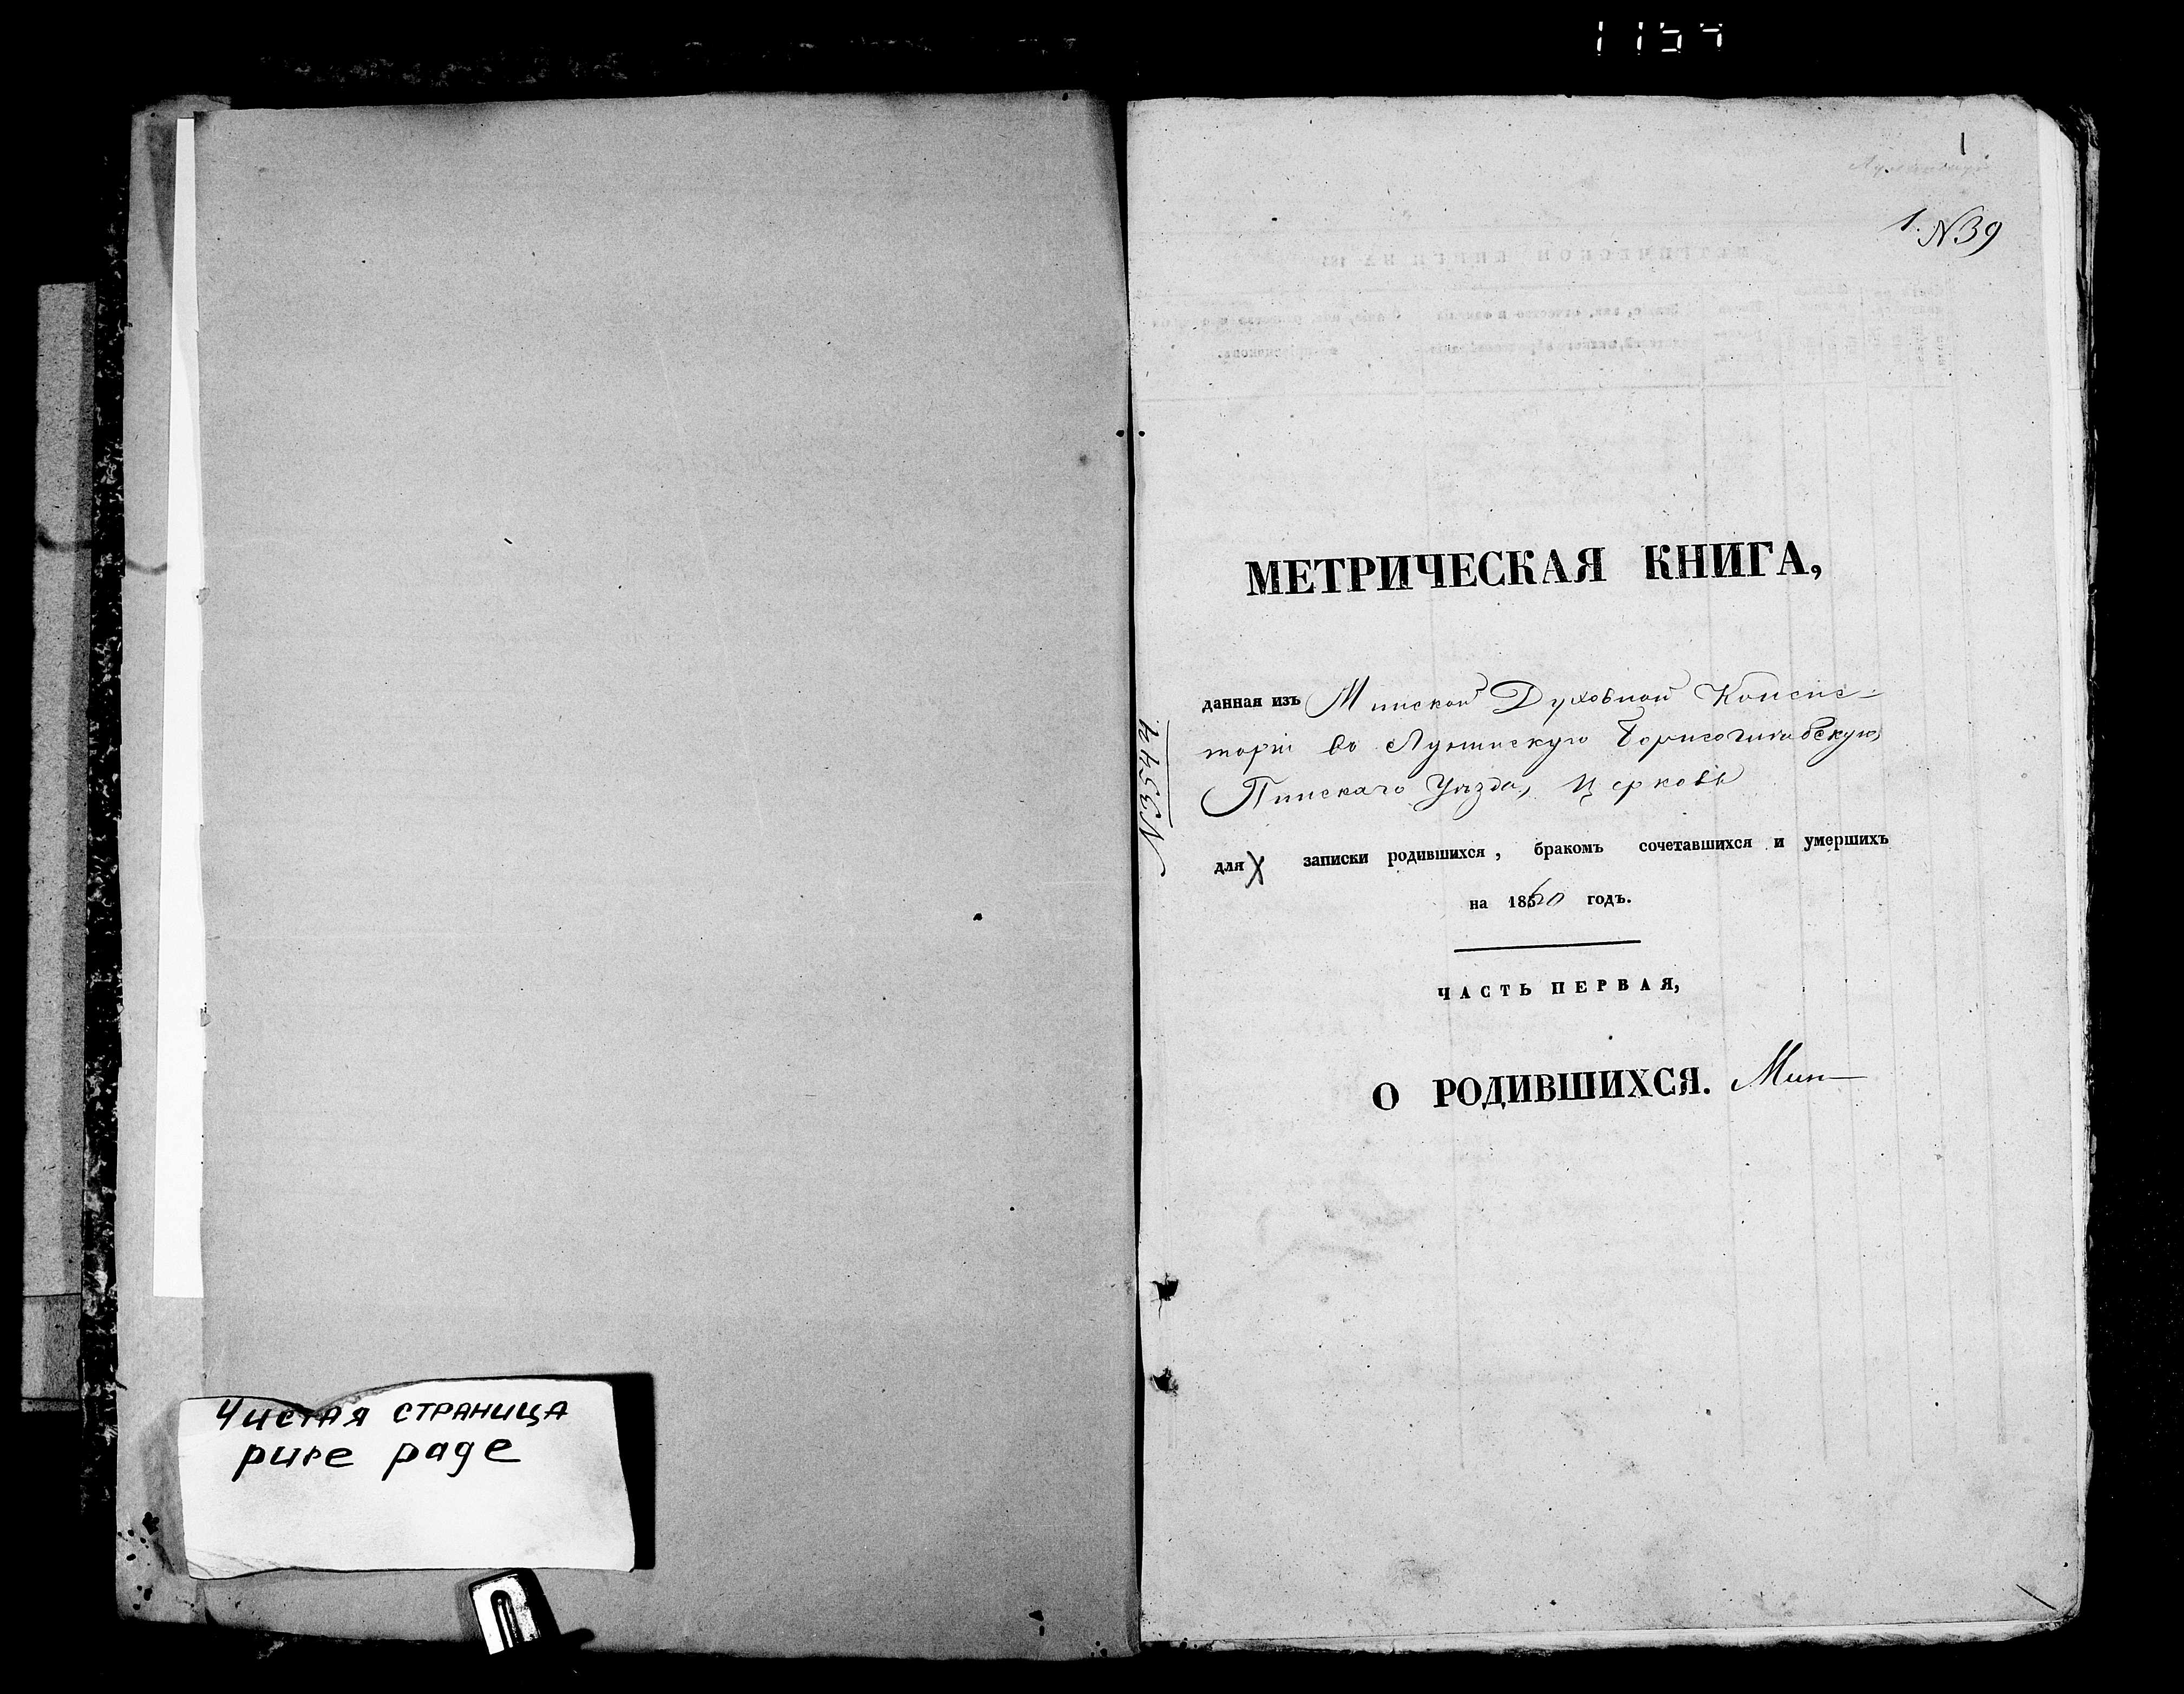 1154
1
1. N39
МЕТРИЧЕСКАЯ КНИГА,
данная изъ Минской Духовной Консис-
торіи во Лунинскую Борисоглѣбскую,
Пинскаго Уѣзда, Церковь
N3544
для записки родившихся, бракомъ сочетавшихся и умершихъ
на 1860 годъ.
ЧАСТЬ ПЕРВАЯ,
О РОДИВШИХСЯ. Мин
Чистая страница
pure page